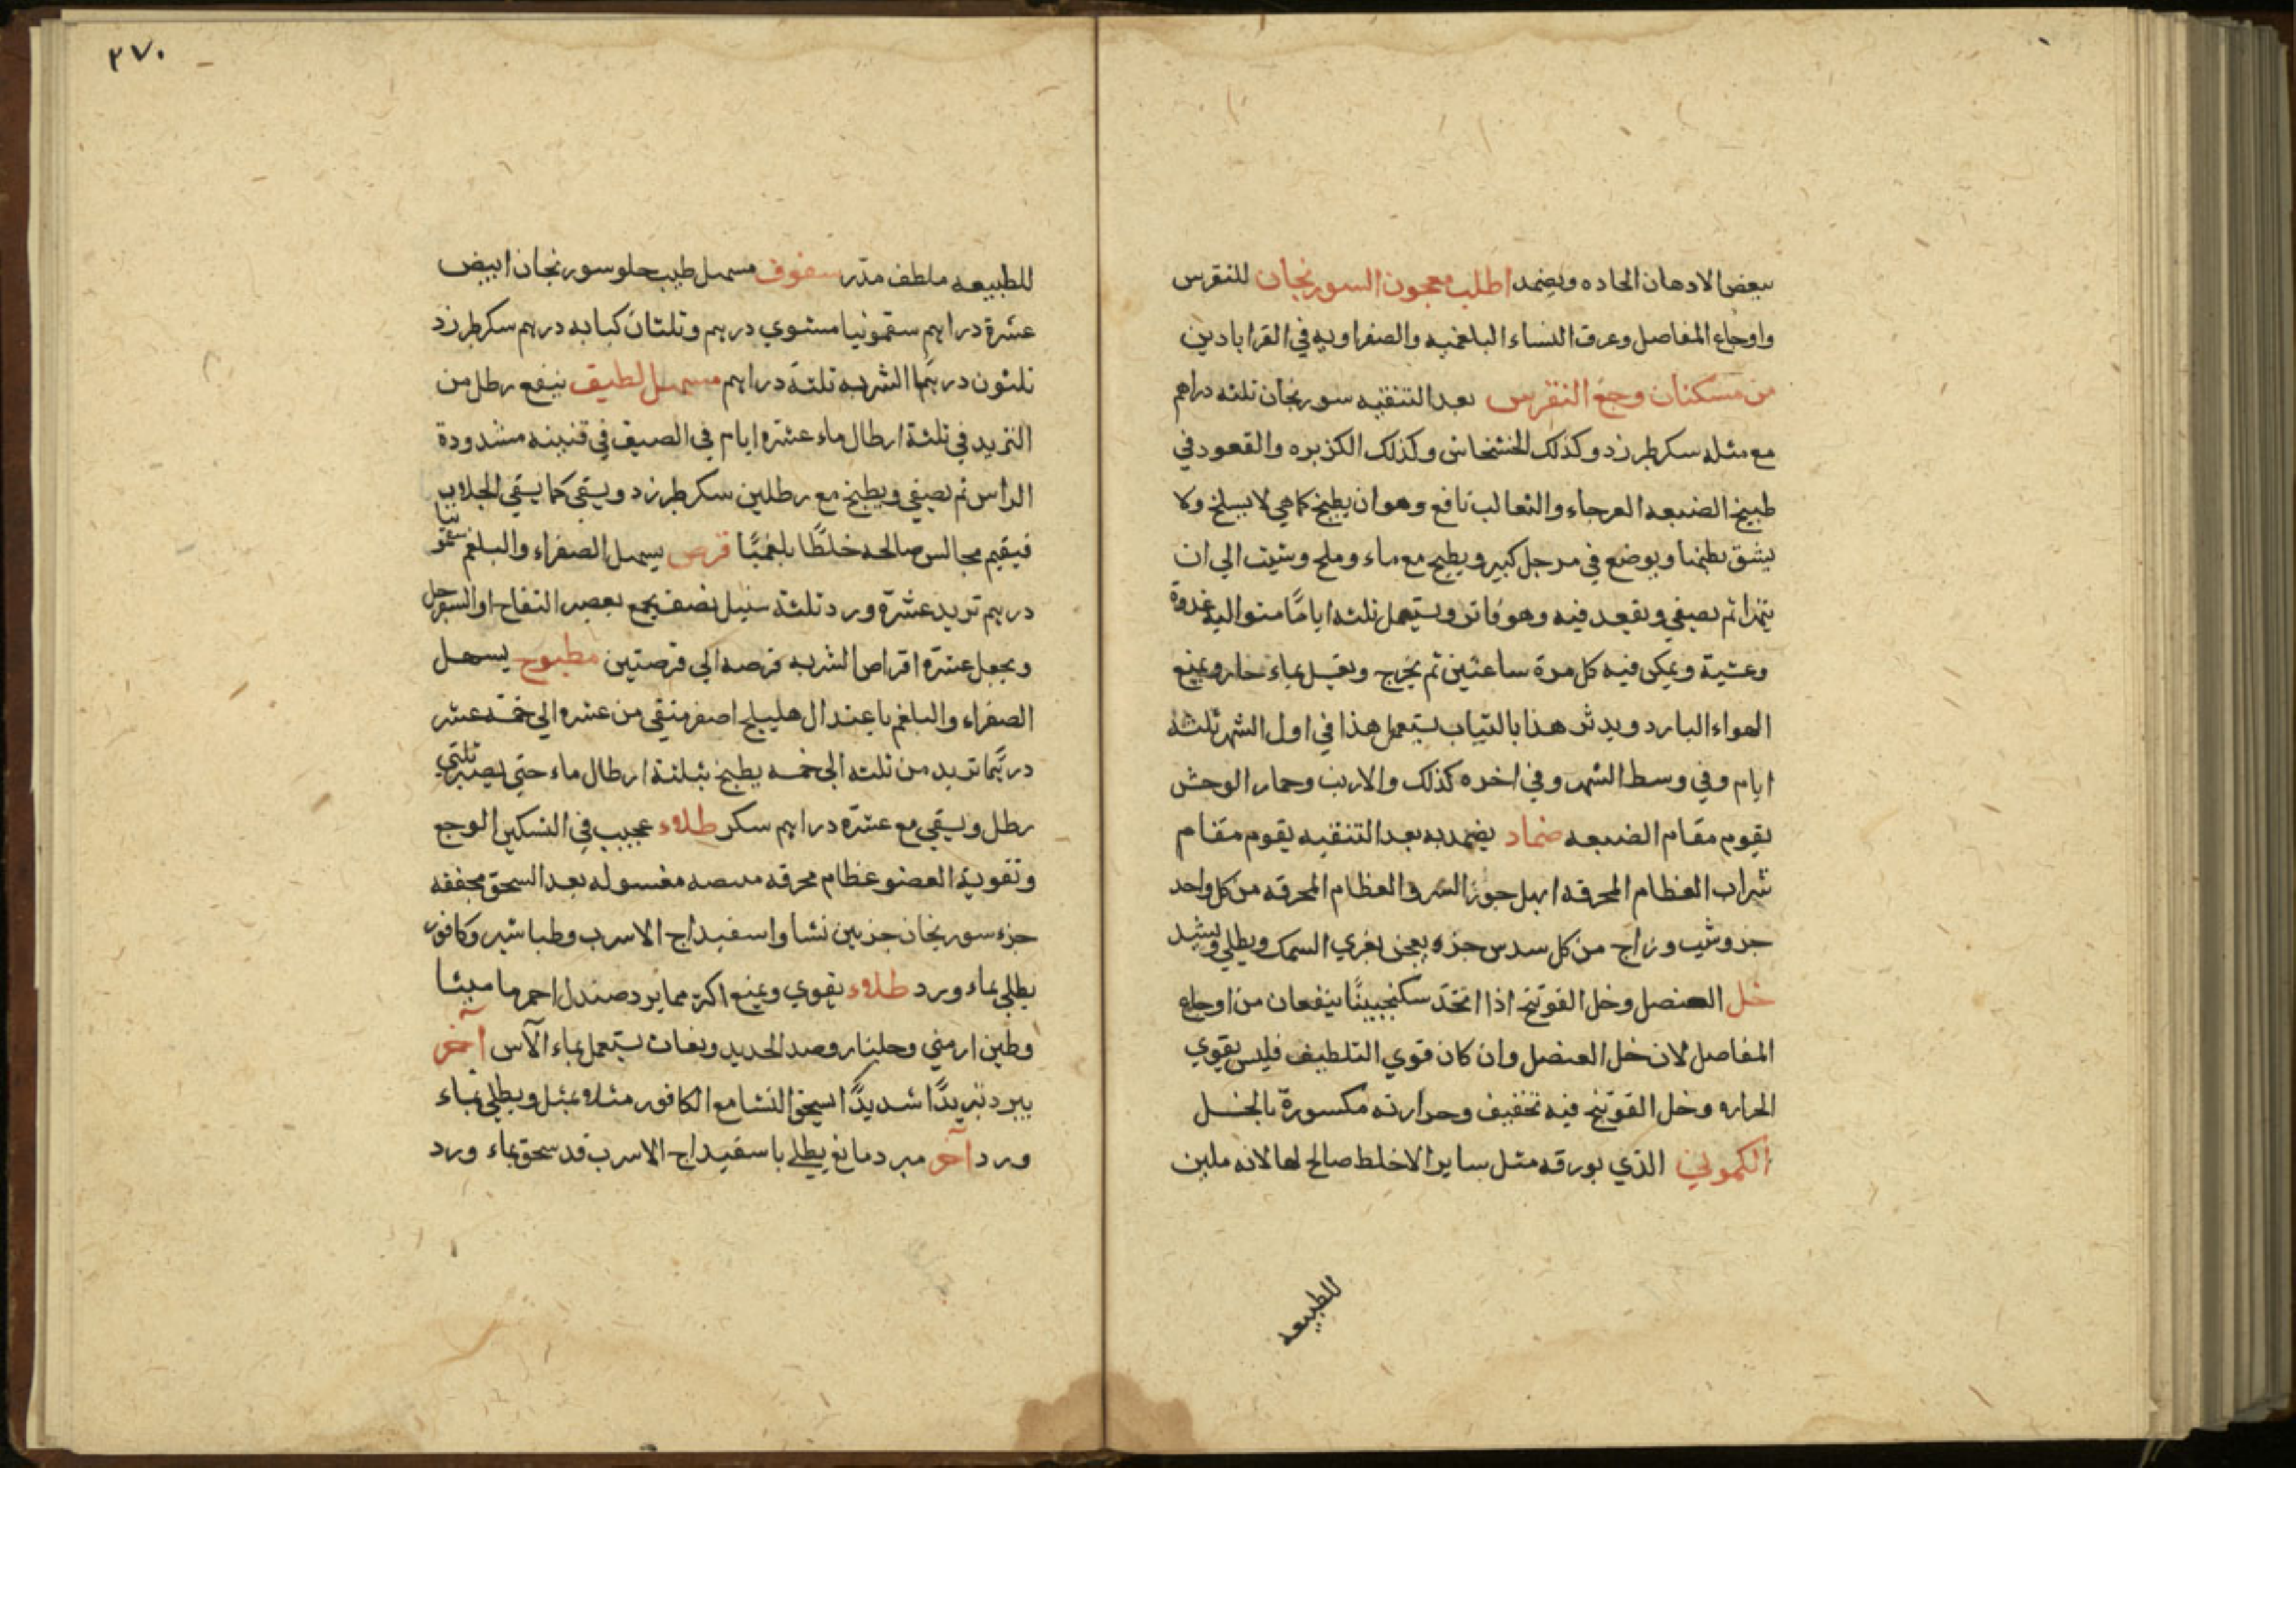 ببعض الادهان الحاده ويضمد اطلب معجون السورنجان للنقرس
واوجاع المفاصل وعرق النساء البلغميه والصفراويه في القراباد‌ين
من مسكنات وجع النقرس بعد التنقيه سورنجان ثلثه دراهم
مع مثله سكر طبرزد وكذلك الخشخاش وكذلك الكزبره والقعود في
طبيخ الضبعه العرجاء والثعالب نافع وهو ان يطبخ كما هي لا يسلخ ولا
يشق بطنها ويوضع في مرجل كبير ويطبخ مع ماء وملح وشبت الي ان
يتهرا ثم يصفي ويقعد فيه وهو فاتر ويستعمل ثلثه اياما متواليه غدوة
وعشية ويمكن فيه كل مرة ساعتين ثم يخرج ويغسل بماء حار ويمنع
الهواء البارد ويدثر هذا بالثياب يستعمل هذا في اول الشهر ثلثه
ايام وفي وسط الشهر وفي اخره كذلك والارنب وحمار الوحش
يقوم مقام الضبعه ضماد يضمد به بعد التنقيه يقوم مقام
شراب العظام المحرقه ابهل جوز السرو العظام المحرقه من كل واحد
جزو شب وزاج من كل سدس جزء يعجن بغري السمك ويطلي ويشد
خل العنصل وخل الفوتنج اذا اتخذ سكنجبينا ينفعان من اوجاع
المفاصل لان خل العنصل وان كان قوي التلطيف فليس بقوي
الحراره وخل الفوتنج فيه تخفيف وحرارته مكسورة بالخل
الكموني الذي بورقه مثل ساير الاخلط صالح لها لانه ملين
للطبيعه
٢٧٠
للطبيعه ملطف مدر سفوف مسهل طيب حلو سورنجان ابيض
عشرة دراهم سقمونيا مشوي درهم وثلثان كبابه درهم سكر طبرزد
ثلثون درهما الشربه ثلثة دراهم مسهل لطيف ينقع رطل من
التربد في ثلثة ارطال ماء عشره ايام في الصيف في قنينه مشدودة
الراس ثم يصفي ويطبخ مع رطلين سكر طبرزد ويسقي كما يسقي الجلاب
فيقيم مجالس صالحه خلطًا بلغميًا قرص يسهل الصفراء والبلغم سقمونيا
درهم تربد عشرة ورد ثلثة سنبل نصف يجمع بعصير التفاح او السفرجل
ويجعل عشرة اقراص الشربه قرصه الي قرصتين مطبوخ يسهل
الصفراء والبلغم باعتدال هليلج اصفر منقي من عشره الي خمسه عشر
درهما تربد من ثلثه الي خمسه يطبخ بثلثة ارطال ماء حتي يصير ثلثي
رطل ويسقي مع عشرة دراهم سكر طلاء عجيب في التسكين الوجع
وتقوية العضو عظام محرقه مغسوله بعد السحق مجففه
جزء سورنجان جزءين نشا واسفيداج الاسرب وطباشير وكافور
يطلي بماء ورد طلاء يقوي ويمنع اكثر مما يبرد صندل احمر ماميثا
وطين ارمني وجلنار وصدا الحديد يستعمل بماء الآس آخر
يبرد تبريدًا شديدًا اسحق النشا مع الكافور مثلا بمثل ويطلي بماء
ورد آخر مبرد مانع يطلي باسفيداج الاسرب قد سحق بماء ورد